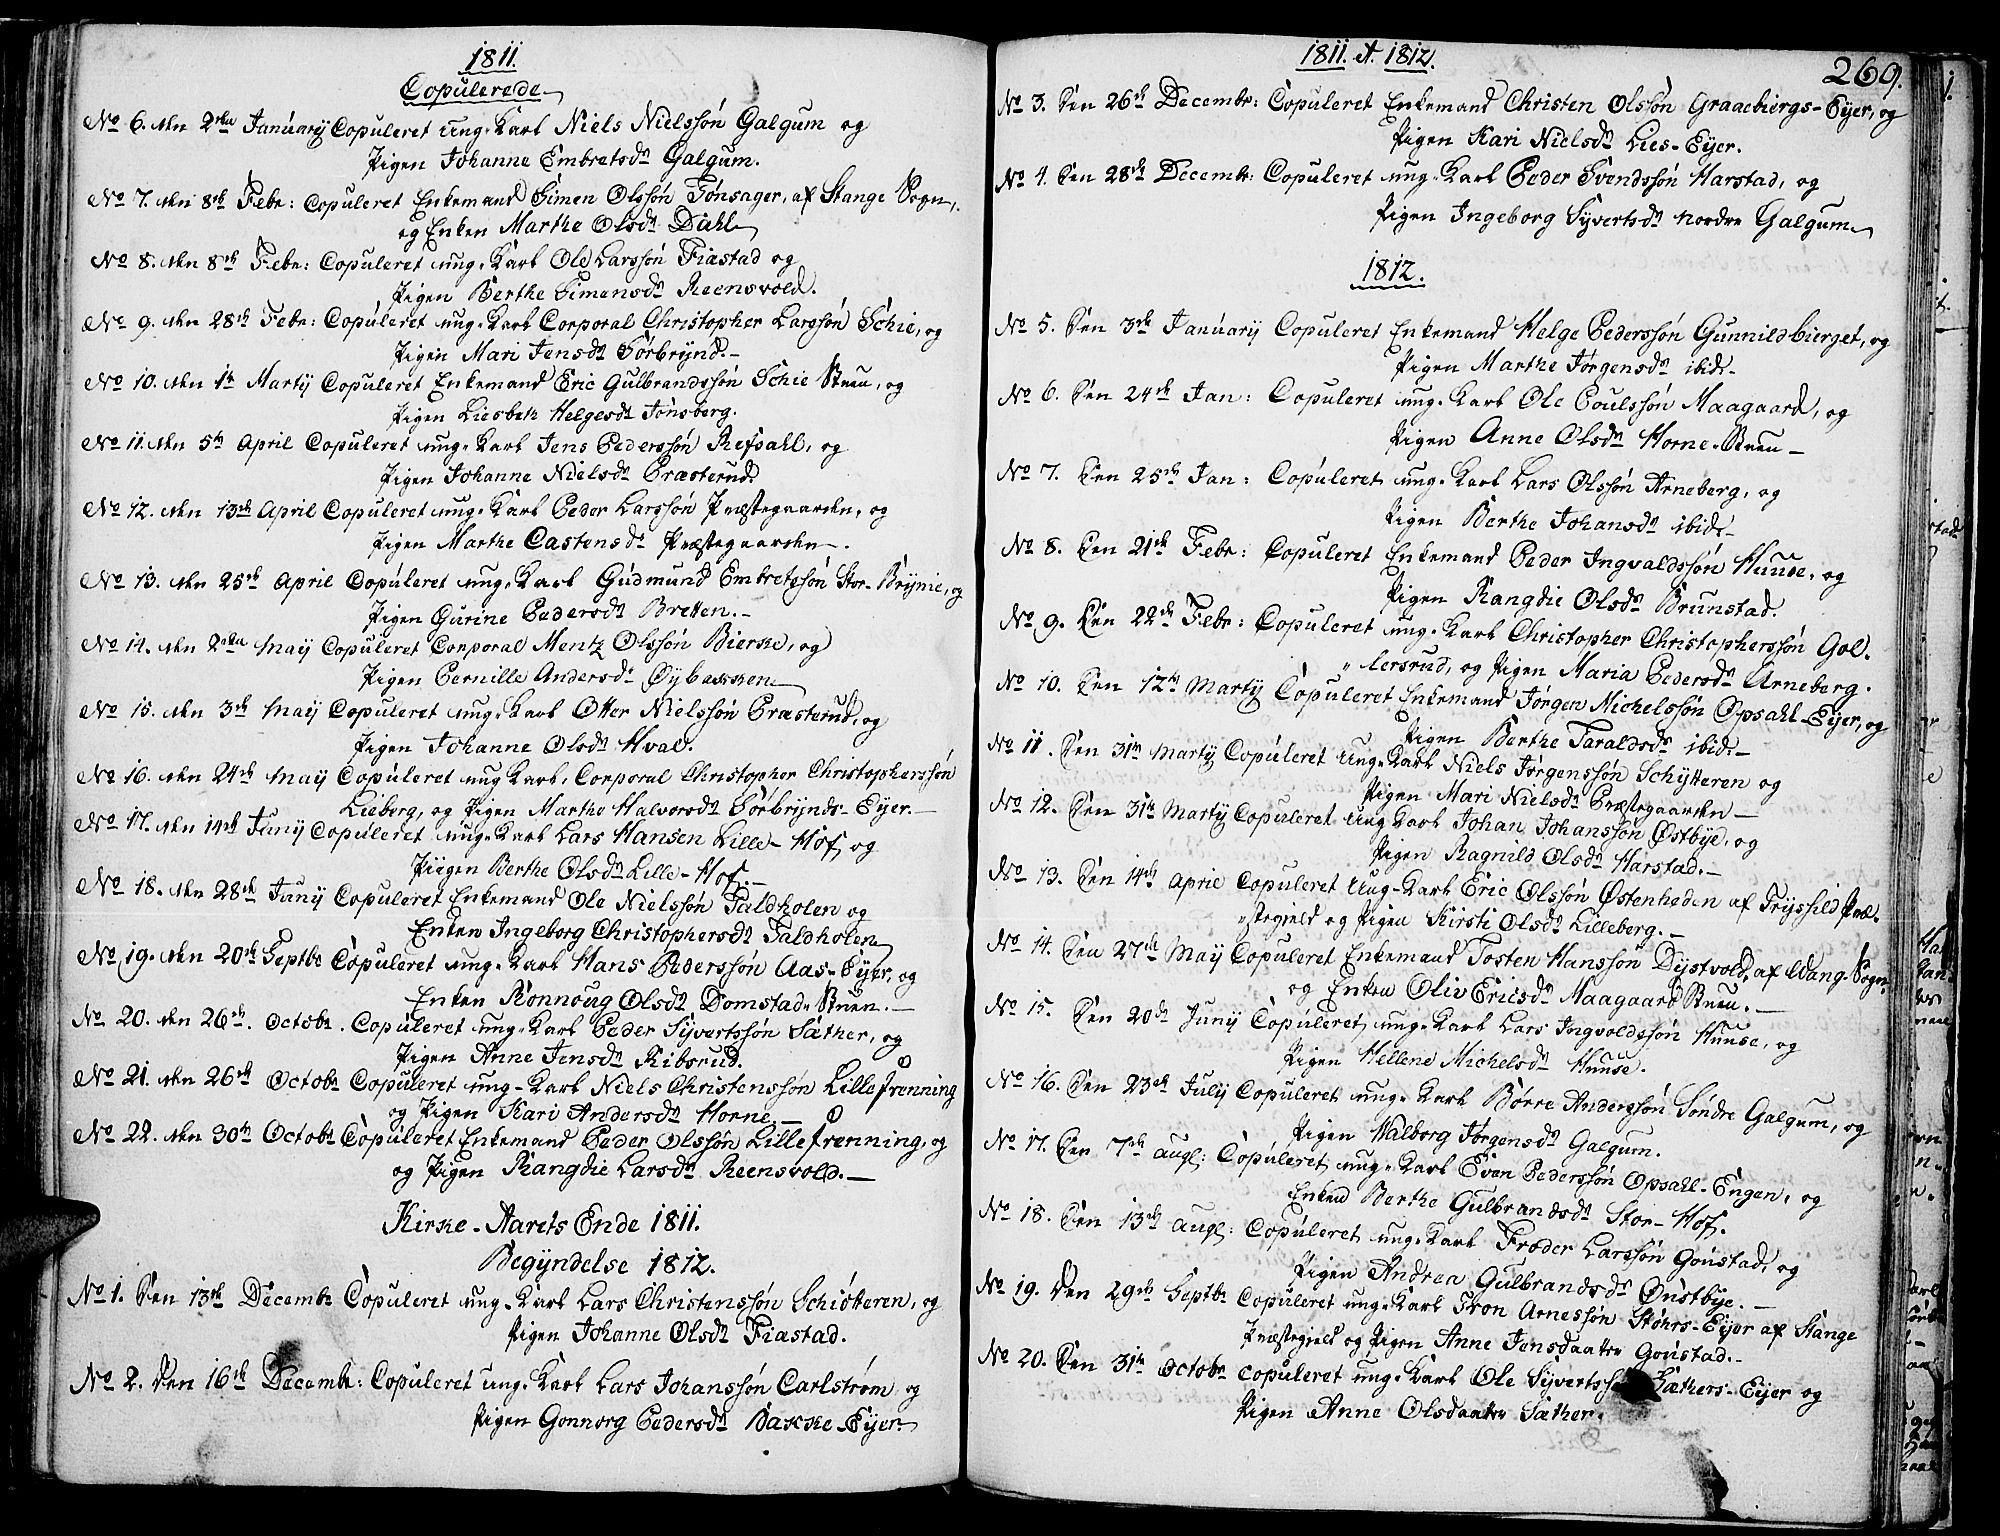 1811.
Copulerede
No 6. den 2den Januarij Copuleret ung-Karl Niels Nielssøn Galgum og
Pigen Johanne Embretsdr Galgum.
No 7. den 8de Febr: Copuleret Enkemand Simen Olssøn Tønsager, af Stange Sogn,
og Enken Marthe Olsdr Dahl
No 8. den 8de Febr: Copuleret ung-Karl Ole Larssøn Fiastad og
Pigen Berthe Simensdr Reensvold.
No 9. den 28de Febr: Copuleret ung-Karl Corporal Christopher Larssøn Schie, og
Pigen Mari Jensdr Sørbrynd.-
No 10. den 1te Martij Copuleret Enkemand Eric Gulbrandssøn Schie Stuen, og
Pigen Liesbeth Helgesdr Tønsberg.
No 11. den 5te April Copuleret ung-Karl Jens Pederssøn Refsahl, og
Pigen Johanne Nielsdr Præsterud
No 12. den 13de April Copuleret ung-Karl Peder Larssøn Præstegaarden, og
Pigen Marthe Castensdr Præstegaarden.
No 13. den 25de April Copuleret ung-Karl Gudmund Embretssøn Stor-Brynie, og
Pigen Gurine Pedersdr Bretten.-
No 14. den 2den Maij Copuleret Corporal Mentz Olssøn Bierke, og
Pigen Pernille Andersdr Øybakken
No 15. den 3de Maij Copuleret ung-Karl Otter Nielssøn Præsterud, og
Pigen Johanne Olsdr Hval.
No 16. den 24de Maij Copuleret ung Karl, Corporal Christopher Christopherssøn
Lieberg, og Pigen Marthe Halvorsdr Sørbrynds-Eyer.-
No 17. den 14de Junij Copuleret ung-Karl Lars Hansen Lille-Hof, og
Piigen Berthe Olsdr Lille-Hof.-
No 18. den 28de Junij Copuleret Enkemand Ole Nielssøn Taldholen og
Enken Ingeborg Christophersdr Taldholen
No 19. den 20de Septbr Copuleret ung-Karl Hans Pederssøn Aas-Eyer, og
Enken Ronnoug Olsdr Domstad-Stuen.-
No 20. den 26de. Octobr. Copuleret ung-Karl Peder Syvertssøn Sæther, og
Pigen Anne Jensdr Kibsrud.
No 21. den 26de Octobr Copuleret ung-Karl Niels Christenssøn Lille Frenning
og Pigen Kari Andersdr Horne.-
No 22. den 30te Octobr Copuleret Enkemand Peder Olssøn Lille Frenning, og
og Pigen Rangdie Larsdr Reensvold.-
Kirke-Aarets Ende 1811.
Begyndelse 1812.
No 1. Den 13de Decembr Copuleret ung-Karl Lars Christenssøn Schiøtteren, og
Pigen Johanne Olsdr Fiastad.
No 2. Den 16de Decembr: Copuleret ung-Karl Lars Johanssøn Carlstrøm og
Pigen Gonnorg Pedersdr Bakke-Eyer.
1811. et. 1812.
269.
No 3. Den 26de Decembr: Copuleret Enkemand Christen Olssøn Graaebiergs-Eyer, og
Pigen Kari Nielsdr Lies-Eyer.
No 4. Den 28de Decembr: Copuleret ung-Karl Peder Svendssøn Harstad, og
Pigen Ingeborg Syvertsdr nordre Galgum
1812.
No 5. Den 3de Januarij Copuleret Enkemand Helge Pederssøn Gunnildbierget, og
Pigen Marthe Jørgensdr ibid.-
No 6. Den 24de Jan: Copuleret ung-Karl Ole Poulssøn Maagaard, og
Pigen Anne Olsdr Horne-Stuen-
No 7. Den 25de Jan: Copuleret ung-Karl Lars Olssøn Arneberg, og
Pigen Berthe Johansdr ibid.-
No 8. Den 21de Febr: Copuleret Enkemand Peder Ingvaldssøn Huuse, og
Pigen Rangdie Olsdr Brunstad.
No 9. Den 22de Febr: Copuleret ung-Karl Christopher Christopherssøn Gol-
"lersrud, og Pigen Maria Pedersdr Arneberg.
No 10. Den 12te Martij Copuleret Enkemand Jørgen Michelssøn Opsahl-Eyer, og
Pigen Berthe Taraldsdr ibid.-
No 11. Den 31te Martij Copuleret ung-Karl Niels Jørgenssøn Schytteren og
Pigen Mari Nielsdr Præstegaarden-
No 12. Den 31te Martij Copuleret ung Karl Johan Johanssøn Østbye, og
Pigen Ragnild Olsdr Harstad.-
No 13. Den 14de April Copuleret ung-Karl Eric Olssøn Østenheden af Tryssild Præ-
"stegield og Pigen Kirsti Olsdr Lilleberg.-
No 14. Den 27de Maij Copuleret Enkemand Tosten Hanssøn Dystvold, af Wang-Sogn,
og Enken Oliv Ericsdr Maagaard Stuen.-
No 15. Den 20de Junij Copuleret, ung-Karl Lars Ingvoldssøn Huuse, og
Pigen Hellene Michelsdr Huuse.
No 16. Den 23de Julij Copuleret ung-Karl Børre Anderssøn Søndre Galgum, og
Pigen Walborg Jørgensdr Galgum.
No 17. Den 7de Augl: Copuleret, ung-Karl Even Pederssøn Opsahl-Engen, og
Enken Berthe Gulbrandsdr Stor-Hof.
No 18. Den 13de Augl: Copuleret ung-Karl Froder Larssøn Gonstad, og
Pigen Andrea Gulbrandsdr Ønstbye.-
No 19. Den 29de Septbr Copuleret ung-Karl Tron Arnessøn Støhrs-Eyer af Stange
Præstegield og Pigen Anne Jensdaatter Gonstad.-
No 20. Den 31te Octobr copuleret ung-Karl Ole Syvertssøn Sæthers-Eyer og
Pigen Anne Olsdaatter Sæther.